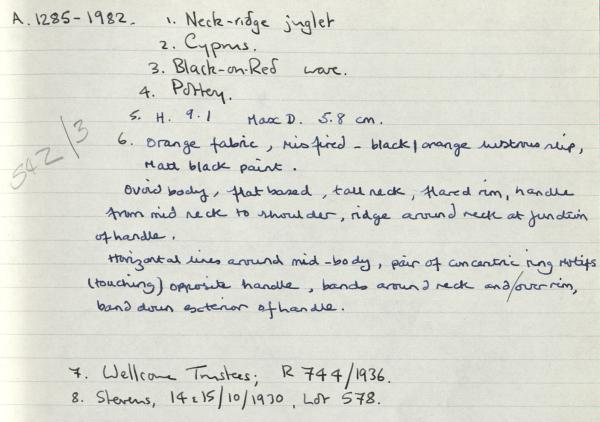 A. 1285-1982. 1. Neck-ridge juglet
2. Cyprus.
3. Black-on-Red ware.
4. Pottery.
5. H. 9.1 Max D. 5.8 cm.
542/3
6. Orange fabric, misfired - black/orange lustrous slip,
Matt black paint.
Ovoid body, flat based, tall neck, flared rim, handle
from mid neck to shoulder, ridge around neck at junction
of handle.
Horizontal lines around mid-body, pair of concentric ring motifs
(touching) opposite handle, bands around neck and/over rim,
band down exterior of handle.
7. Wellcome Trustees; R 744/1936.
8. Stevens, 14 & 15/10/1930, Lot 578.